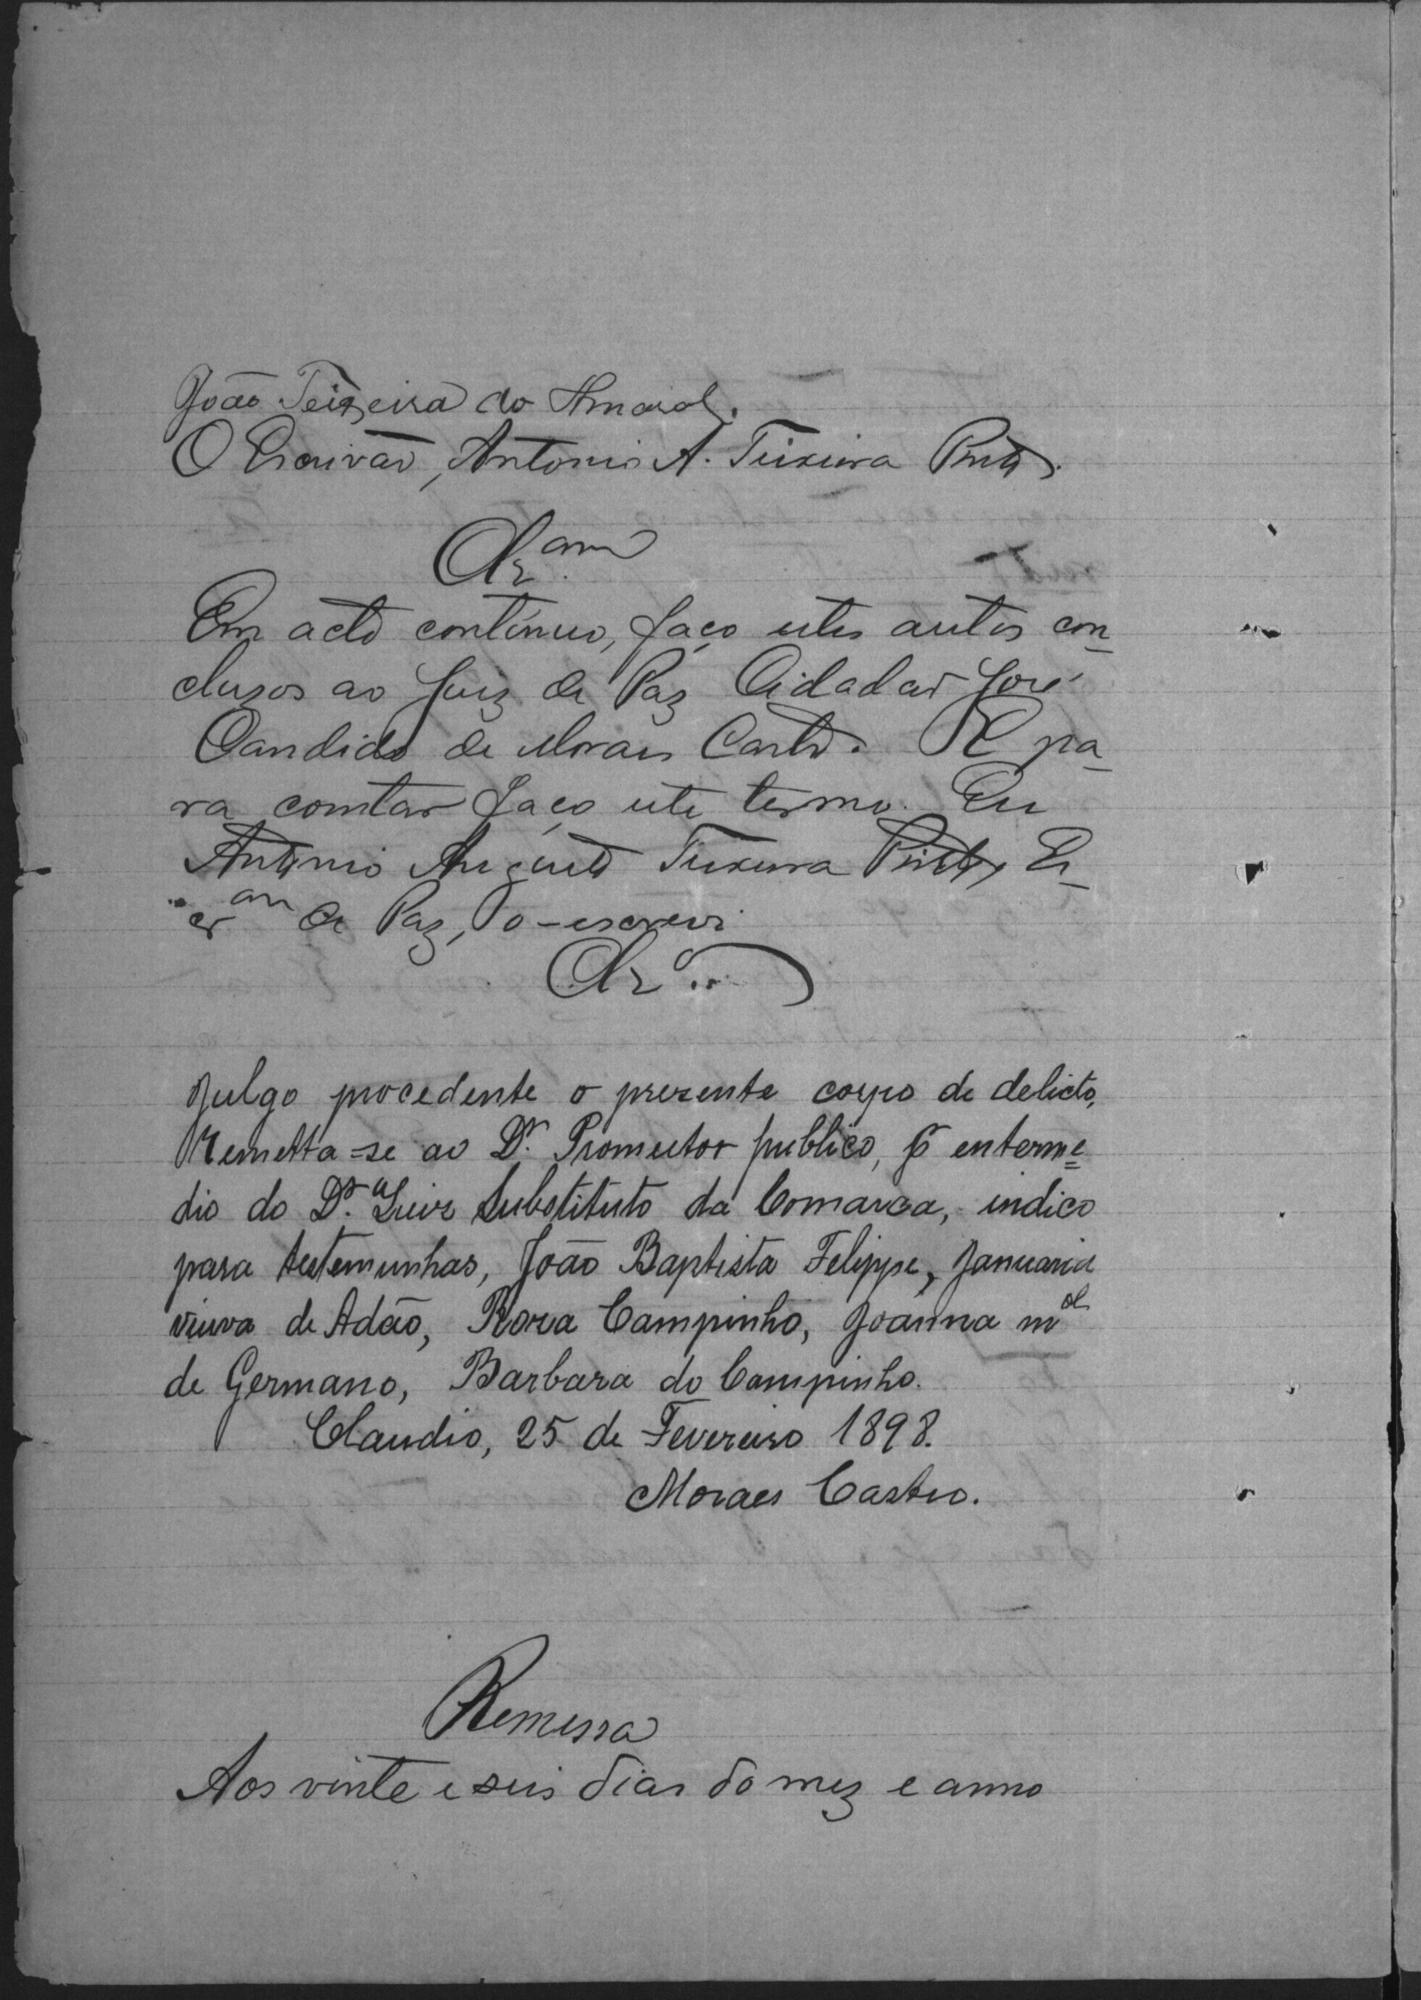 João Teixeira do Amaral.
O Escrivão, Antonio A. Teixeira Pinto.
Clz.am
Em acto continuo, faço estes autos con-
cluzos ao Juiz de Paz Cidadão José
Candido de Moraes Castro. E pa-
ra constar faço este termo. Eu
Antonio Augusto Teixeira Pinto, Es-
cram de Paz, o-escrevi
Clz.
Julgo procedente o prezente corpo de delicto,
Remetta-se ao Dr. Promutor publico, pr enterme=
dio do Dr. Juiz Substituto da Comarca, indico
para testemunhas, João Baptista Felippe, Januaria
viuva de Adão, Roza Campinho, Joanna mel
de Germano, Barbara do Campinho.
Claudio, 25 de Fevereiro 1898.
Moraes Castro.
Remessa
Aos vinte e seis dias do mez e anno